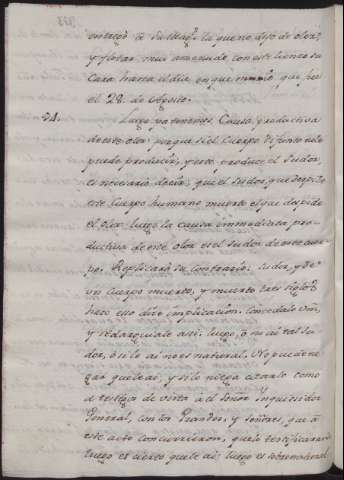 entregò à su Mag.d la que no dejò de oler,
y flotar mui amenudo, con este lienzo su
Cara hasta el dia en que murió, que fue
el 28 de Agosto.
54. Luego ya tenemos Causa productiva
de este olor: porque si el Cuerpo difunto no le
puede producir, y este produce el Sudor,
es necesario decir, que el Sudor, que despide
este Cuerpo humano muerto es el que despide
el olor: luego la causa immediata pro-
ductiva de este olor es el Sudor de este cuer-
po. Replicará su contrario: sudor, y de
un Cuerpo muerto, y muerto tres siglos
hace eso dice implicacion: concedalo Vm,
y redarguiale asi: luego, ò no ai tal Su-
dor, ò si le ai no es natural. No puede ne-
gar que le ai, y si lo niega citarlo como
à testigo de vista à el Señor Inquisidor
General, con los Grandes, y Señores, que à
este acto concurrieron, que lo testificaran
luego es cierto que le ai: luego es sobrenatural